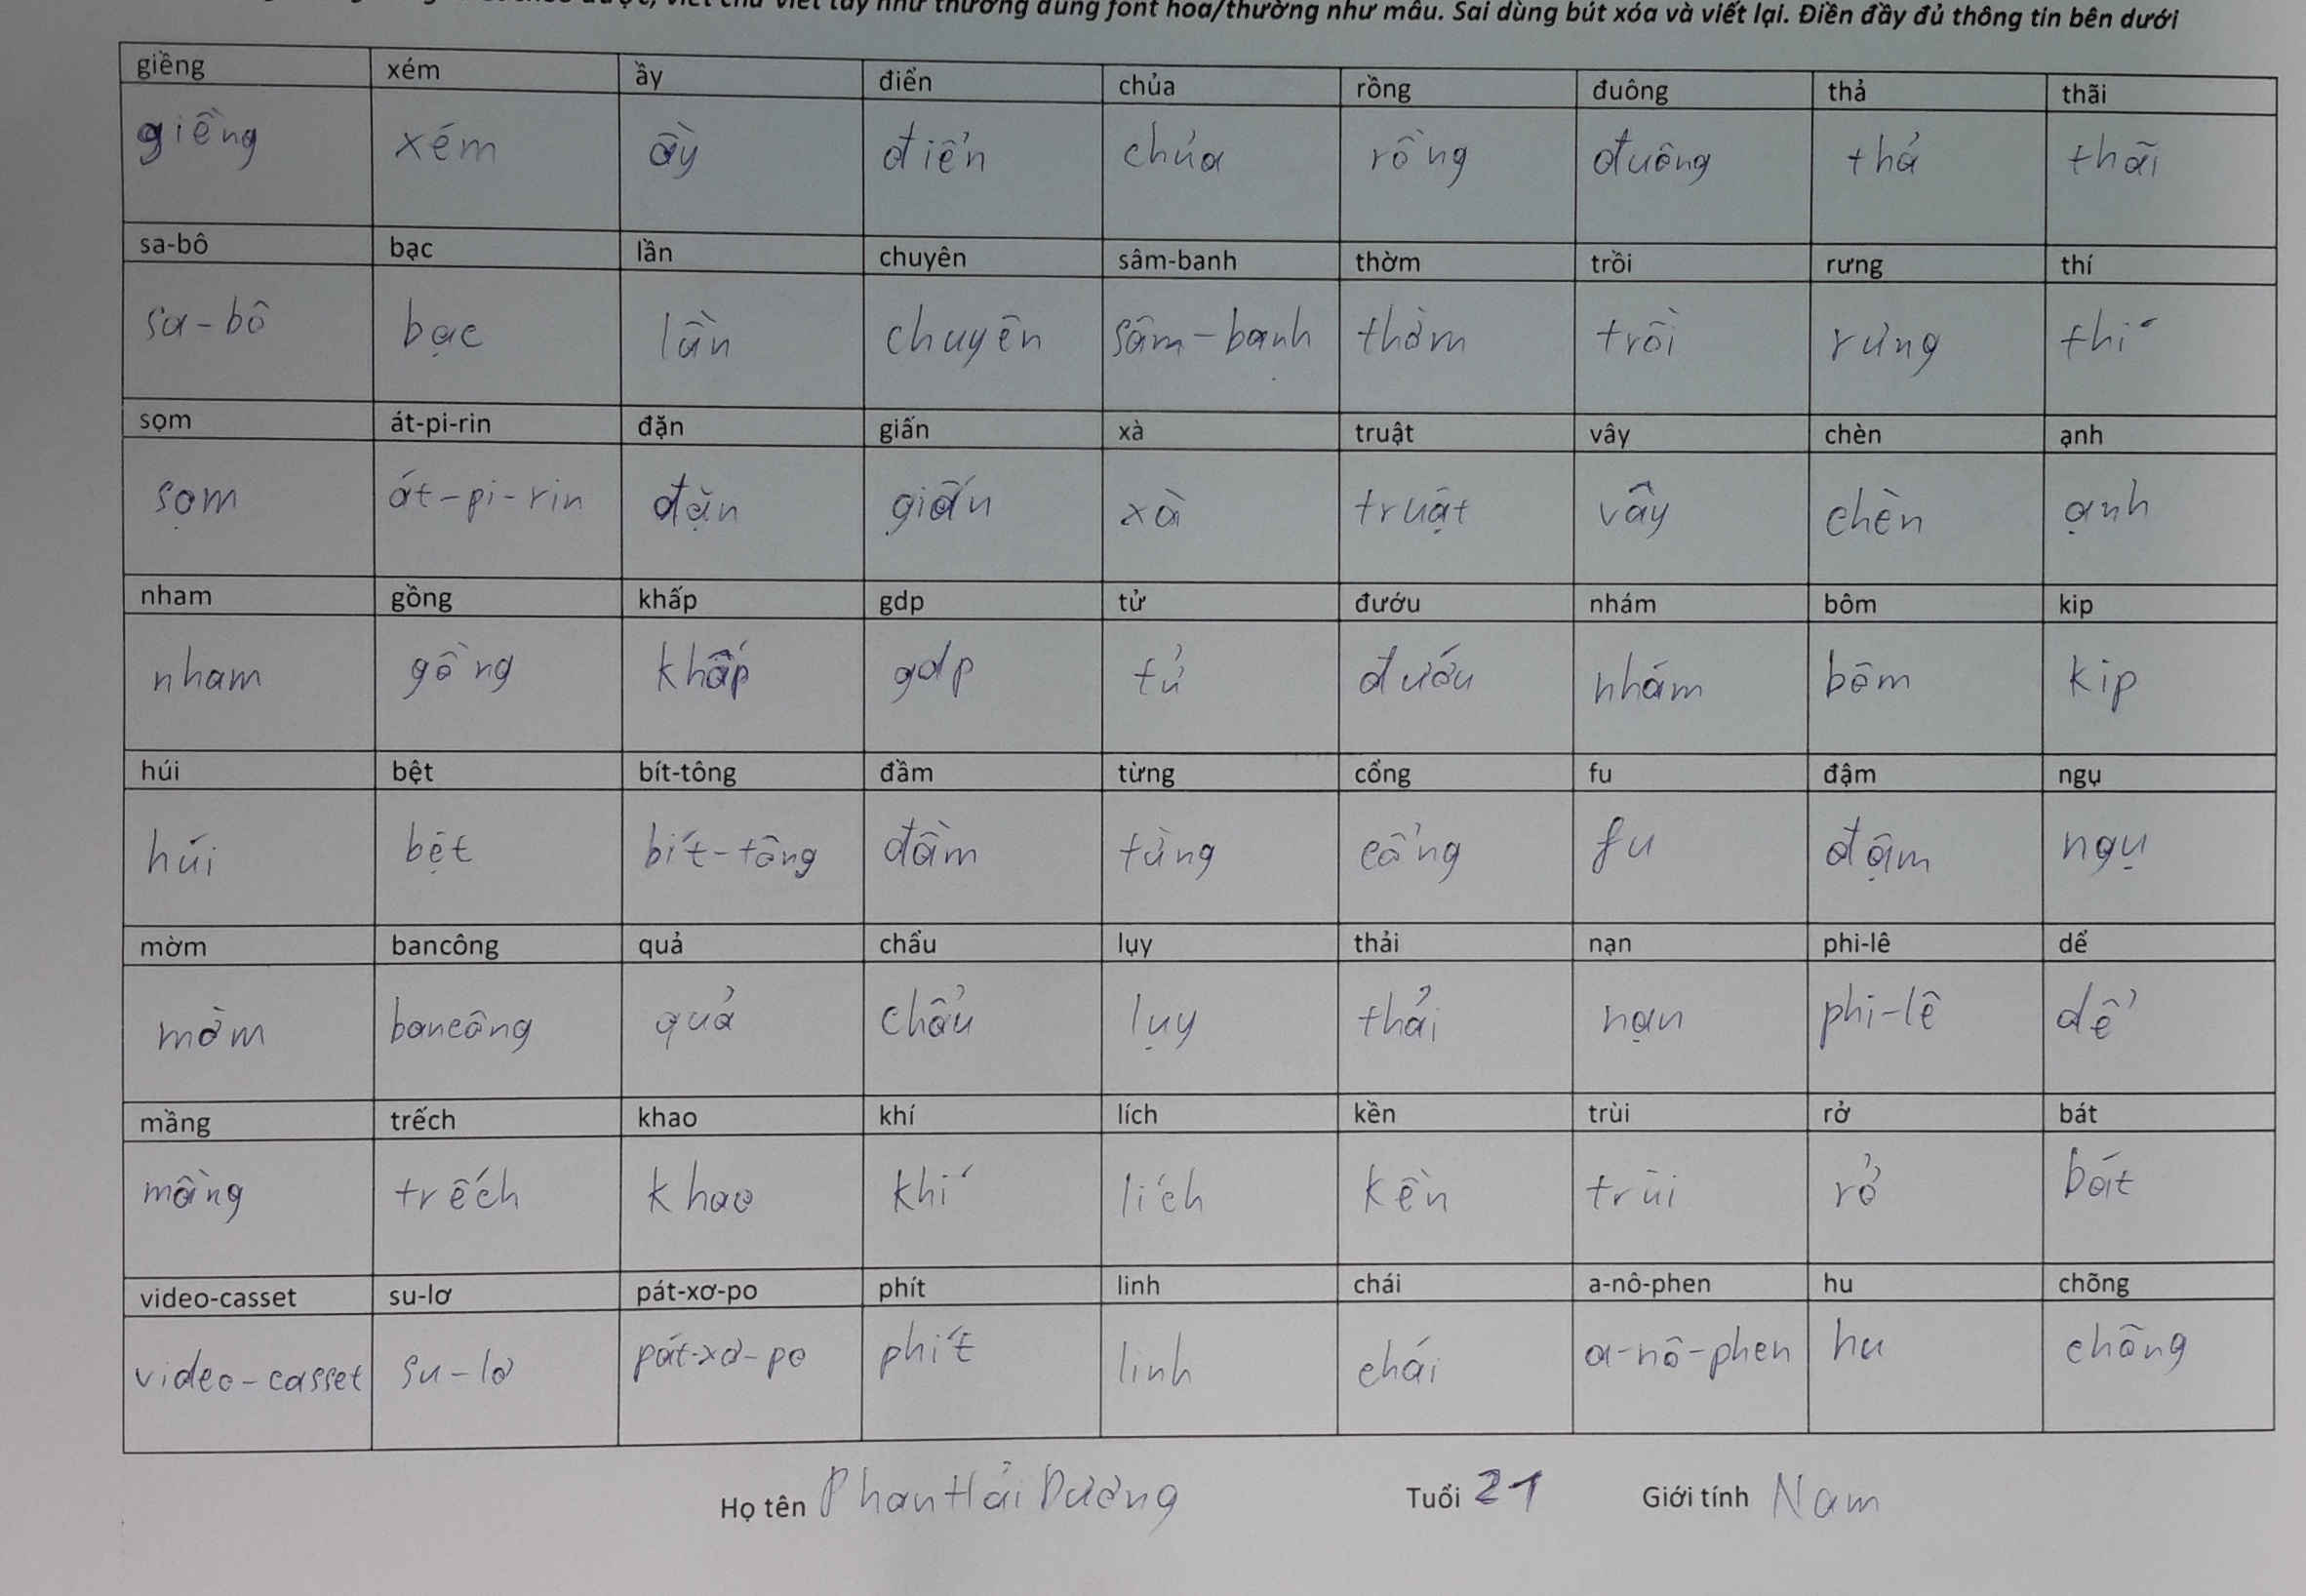 viết chữ viết tay như thường dùng font hoa/thường như mẫu. Sai dùng bút xóa và viết lại. Điền đầy đủ thông tin bên dưới
giềng xém ầy điển chủa rồng đuông thả thãi
giềng xém ầy điển chủa rồng đuông thả thãi
sa-bô bạc lần chuyên sâm-banh thờm trồi rưng thí
sa-bô bạc lần chuyên sâm-banh thờm trồi rưng thí
sọm át-pi-rin đặn giấn xà truật vây chèn ạnh
sọm át-pi-rin đặn giấn xà truật vây chèn ạnh
nham gồng khấp gdp tử đướu nhám bôm kip
nham gồng khấp gdp tử đướu nhám bôm kip
húi bệt bít-tông đầm từng cổng fu đậm ngụ
húi bệt bít-tông đầm từng cổng fu đậm ngụ
mờm bancông quả chẩu lụy thải nạn phi-lê dể
mờm bancông quả chẩu lụy thải nạn phi-lê dể
mầng trếch khao khí lích kền trùi rở bát
mầng trếch khao khí lích kền trùi rở bát
video-casset su-lơ pát-xơ-po phít linh chái a-nô-phen hu chõng
video-casset su-lơ pát-xơ-po phít linh chái a-nô-phen hu chõng
Họ tên Phan Hải Dương Tuổi 21 Giới tính Nam